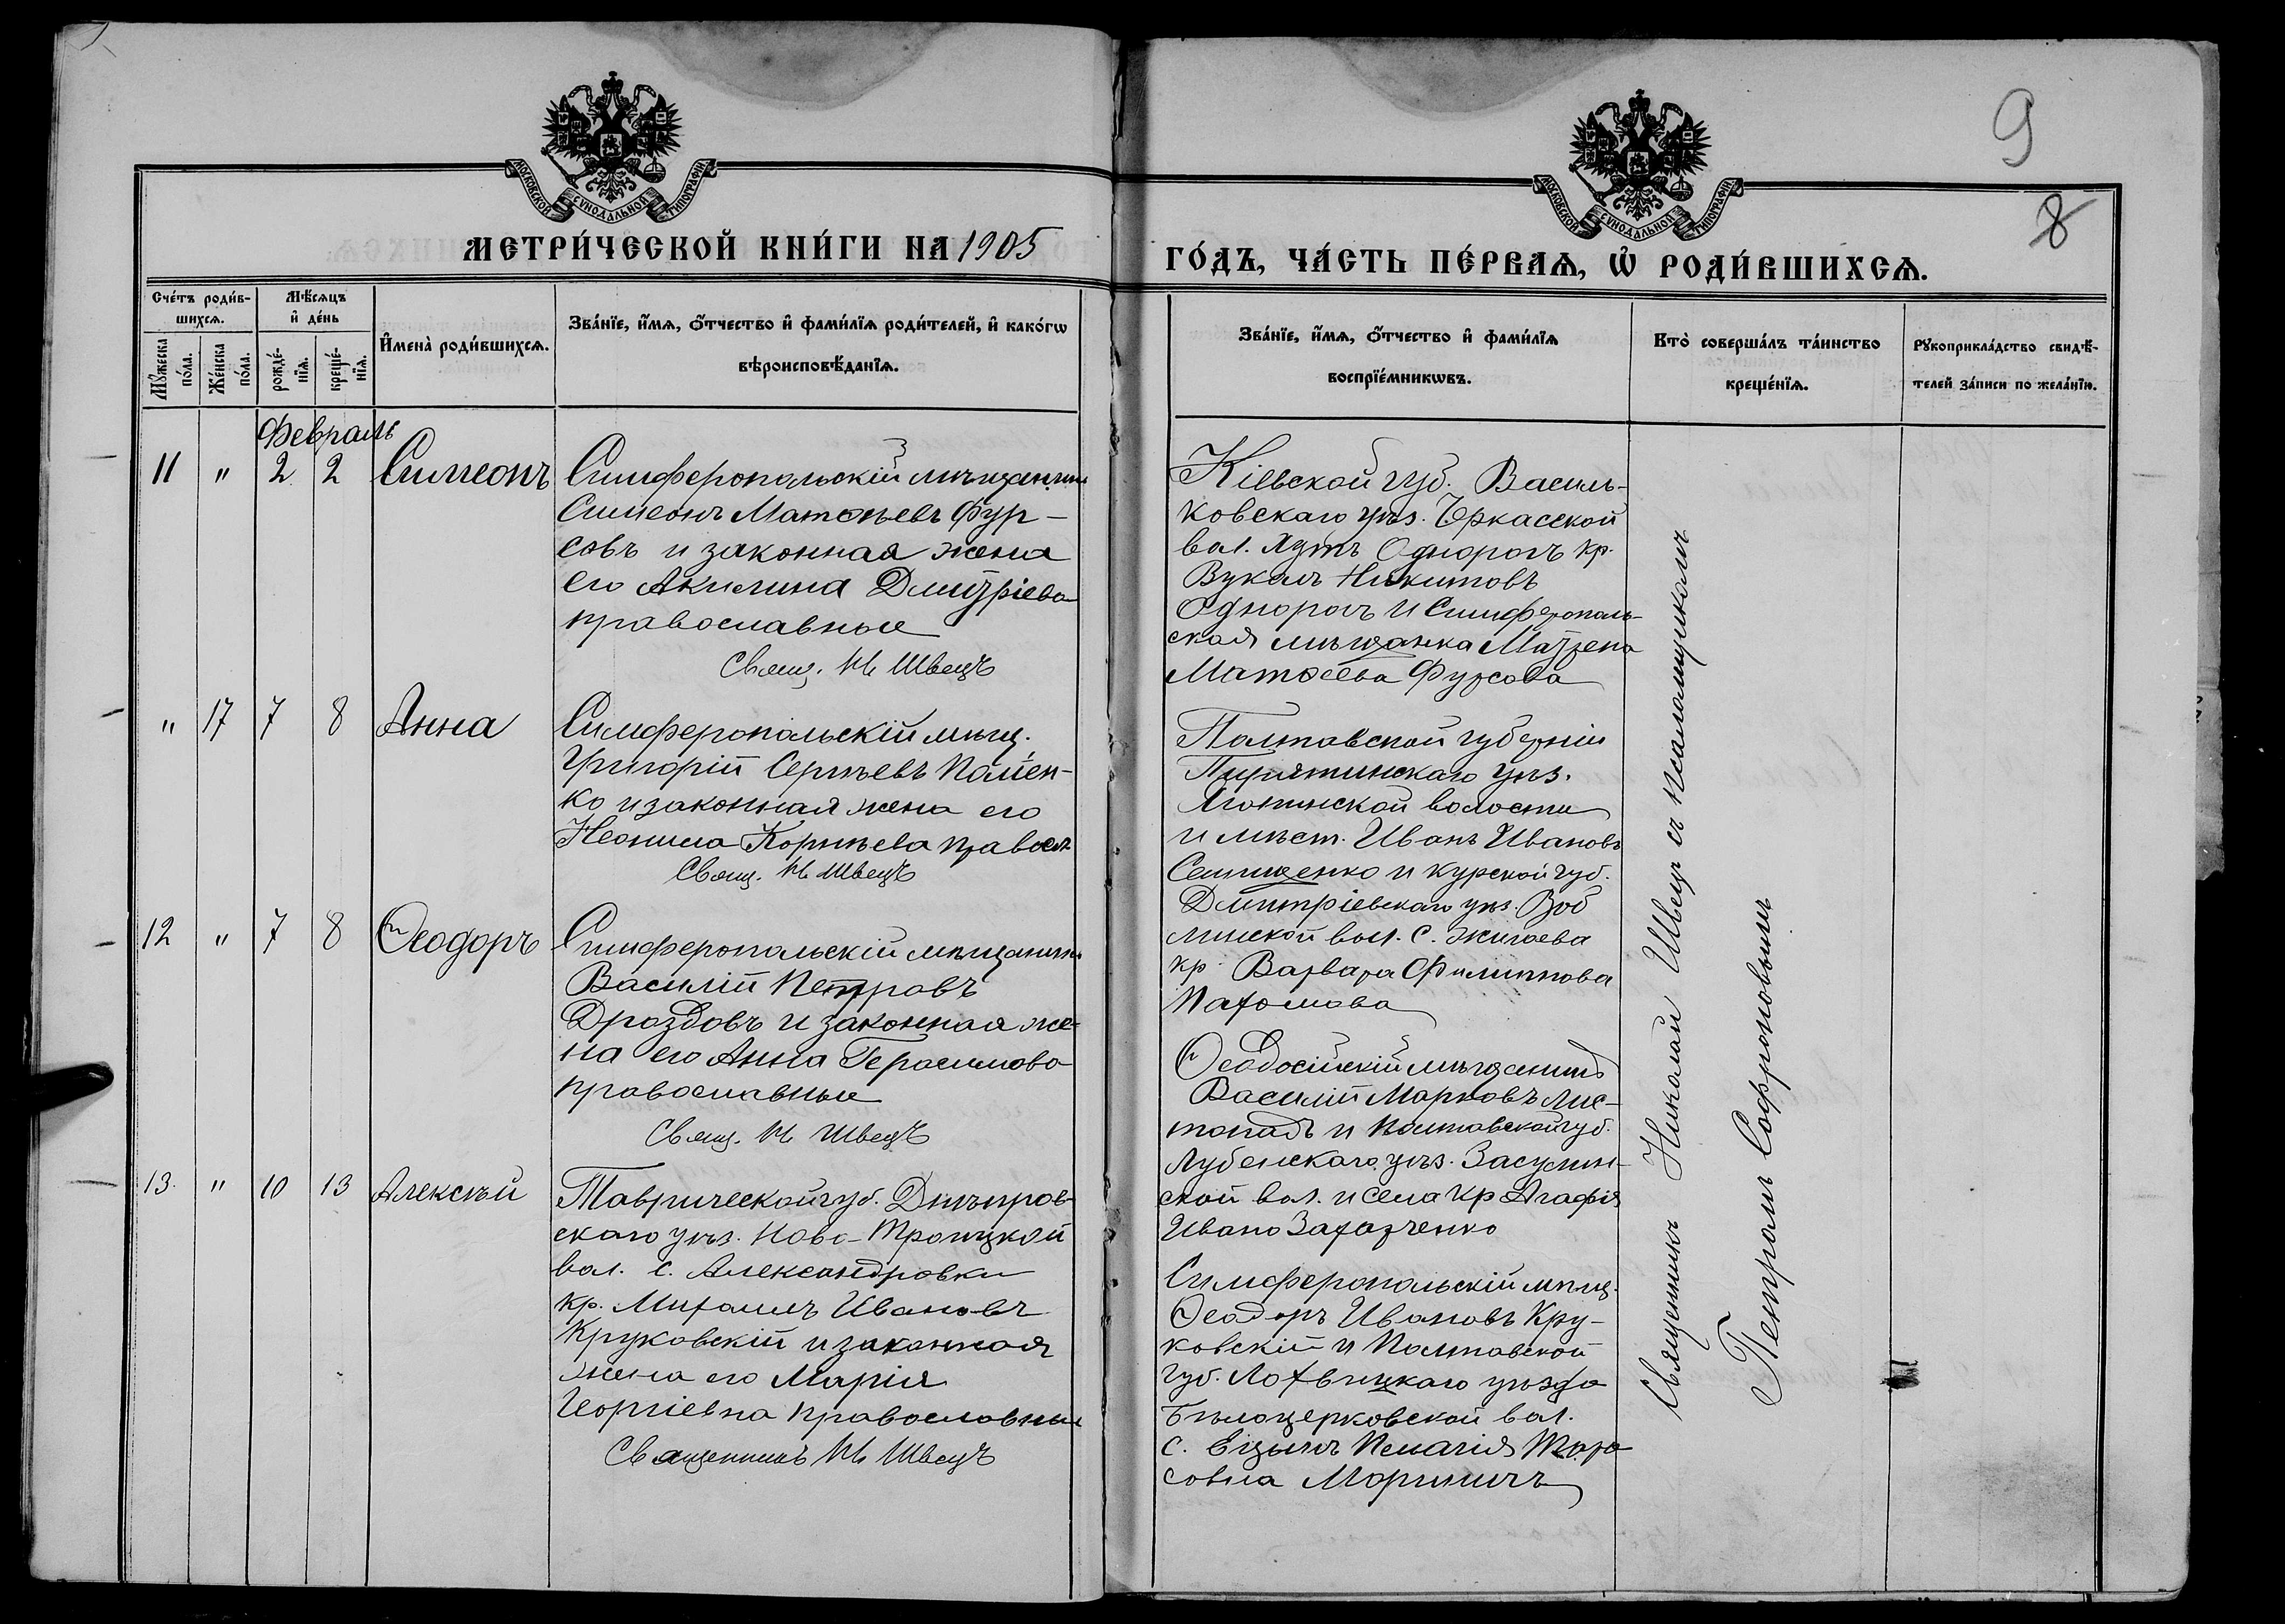 9
8
МОСКОВСКОЙ СѴНОДАЛЬНОЙ ТИПОГРАФІИ
МОСКОВСКОЙ СѴНОДАЛЬНОЙ ТИПОГРАФІИ
МЕТРИ́ЧЕСКОЙ КНИ́ГИ НА 1905
ГО́ДЪ, ЧА́СТЬ ПЕ́РВАѦ, Ѡ҆ РОДИ́ВШИХСѦ.
Сче́тъ роди́в-
шихсѧ.
Мꙋ́жеска по́ла.
Же́нска по́ла.
Мѣ́сѧцъ
и҆ де́нь
рожде́-
нїѧ.
креще́-
нїѧ.
И҆мена̀ роди́вшихсѧ.
Зва́нїе, и҆́мѧ, ѻ҆́тчество и҆ фами́лїѧ роди́телей, и҆ како́гѡ
вѣроисповѣ́данїѧ.
Зва́нїе, и҆́мѧ, ѻ҆́тчество и҆ фами́лїѧ
воспрїе́мникѡвъ.
Кто̀ соверша́лъ та́инство
креще́нїѧ.
Рꙋкоприкла́дство свидѣ́-
телей за́писи по жела́нїю.
Февраль
11 " 2 2 Симеонъ
Симферопольскій мѣщанинъ
Симеонъ Матѳѣевъ Фур-
совъ и законная жена
его Акилина Дмитріева
православные
Свящ. Н. Швецъ
Кіевской губ. Василь-
ковскаго уѣз. Черкасской
вол. Однорогъ кр.
Вукалъ Никитовъ
Однорогъ и Симферополь-
ская мѣщанка Матрена
Матѳеева Фурсова
" 17 7 8 Анна
Симферопольскій мѣщ.
Григорій Сергѣевъ Палѣен-
ко и законная жена его
Неонила Корнѣева правосл.
Свящ. Н. Швецъ
Полтавской губерніи
Пирятинскаго уѣз.
Яготинской волости
и мѣст. Иванъ Ивановъ
Семиженко и Курской губ.
Дмитріевскаго уѣз.
линской вол. с. Жигаева
кр. Варвара Филиппова
Пахомова
12 " 7 8 Ѳеодоръ
Симферопольскій мѣщанинъ
Василій Петровъ
Дроздовъ и законная же-
на его Анна Герасимова
православные
Свящ. Н. Швецъ
Ѳеодосійскій мѣщанинъ
Василій Марковъ Лис-
топадъ и Полтавской губ.
Лубенскаго уѣз. Засулин-
ской вол. и села кр Агафія
Ивано Захарченко
13. " 10 13 Алексѣй
Таврической губ. Днѣпров-
скаго уѣз. Ново-Троицкой
вол. с. Александровки
кр. Михаилъ Ивановъ
Круковскій и законная
жена его Марія
Георгіевна православные
Священникъ Н. Швецъ
Симферопольскій мѣщ.
Ѳеодоръ Ивановъ Кру-
ковскій и Полтавской
губ. Лохвицкаго уѣзда
Бѣлоцерковской вол.
с. Пелагія Тара
совна Мориничъ
Священникъ Николай Швецъ съ псаломщикомъ
Петромъ Софроновымъ